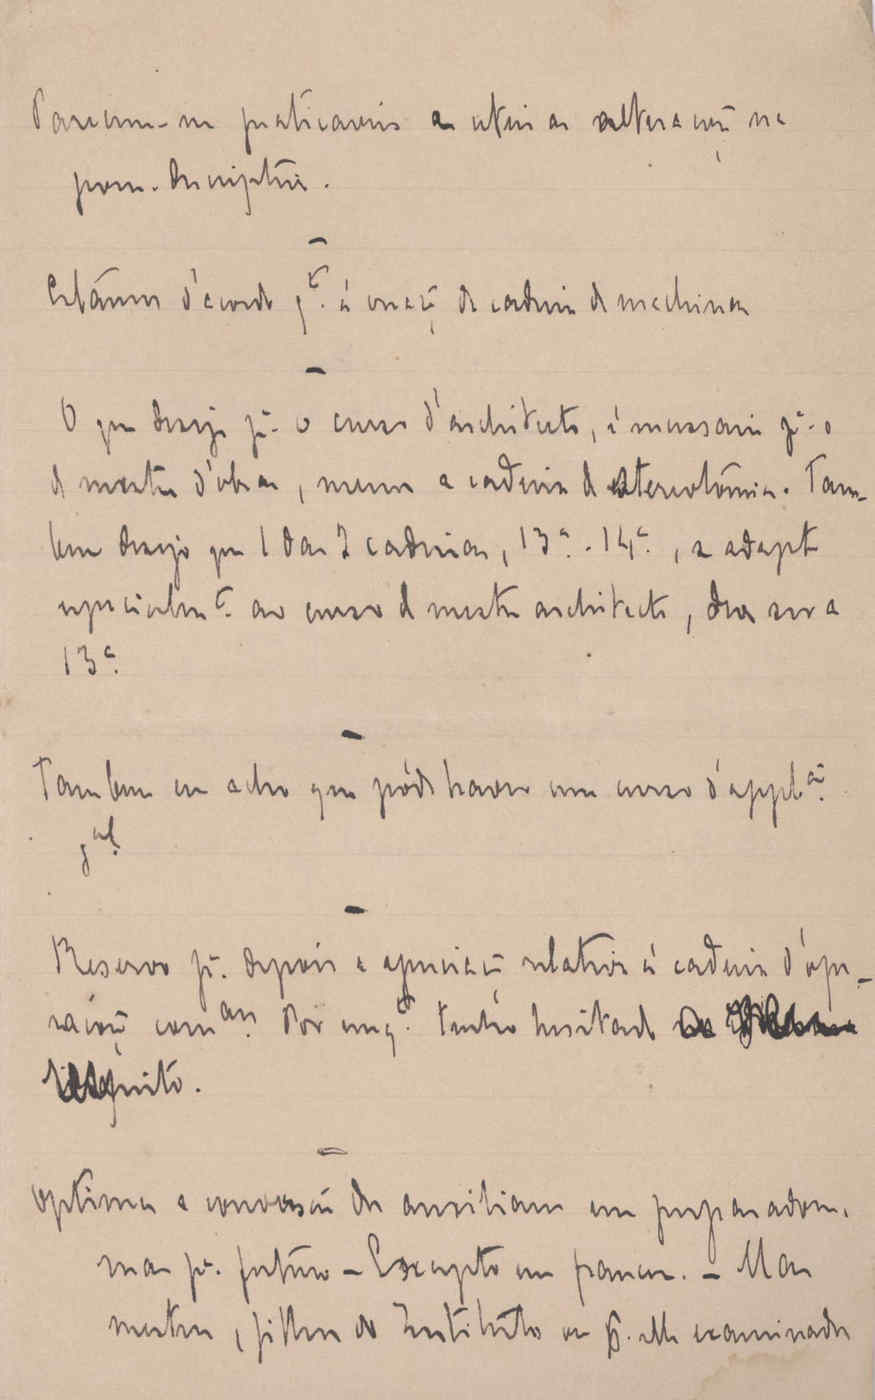 Parecem-me praticaveis e uteis as alterações na
geom. descriptiva.
Estâmos d'acordo q.to á creaçã da cadeira de machinas
O que desejo p.a o curso d'architecto, é necessario p.a o
de mestre d'obras, menos a cadeira de stereotomia. Tam-
bem desejo que 1 das 2 cadeiras, 13.a - 14.a, se adapte
especialm.te ao curso de mestre architecto, deve ser a
13.a
Tambem eu acho que póde haver um curso d'appl.ão
g.al
Reservo p.a depois a apreciaçã relativa á cadeira d'ope-
rações com.aes Por emq.to tenho hesitado
Optima a conversão dos auxiliares em preparadores.
mas p.a futuro - Excepto em francez. - Mas
mestres, filhos do Instituto ou p. elle examinados